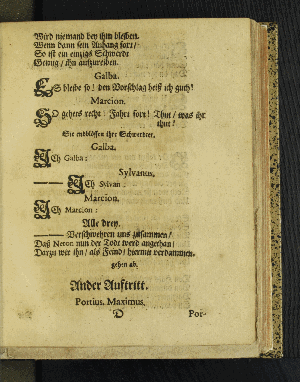 Wird niemand bey ihm bleiben.
Wenn dann sein Anhang fort/
So ist ein einzigs Schwerdt
Genug/ ihn aufzureiben.
Galba.
ES bleibe so! den Vorschlag heiß ich guth!
Marcion.
SO gehets recht! Fahrt fort! Thut/ was ihr
thut!
Sie entblössen ihre Schwerdter.
Galba.
ICh Galba:
Sylvanus.
ICh Sylvan:
Marcion.
ICh Marcion:
Alle drey.
Verschwehren uns zusammen/
Daß Neron nun der Todt werd angethan/
Darzu wir ihn/ als Feind/ hiermit verdammen.
gehen ab.
Ander Auftritt.
Portius. Maximus.
D Por-